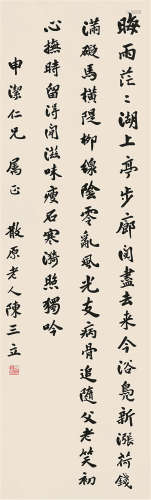 晦雨茫〻湖上亭步廊閱盡去來今浴鳧新漲荷錢
滿礙馬橫隄柳線陰零亂風光支病骨追隨父老笑初
心撫時留得閒滋味瘦石寒漪照獨吟
申潔仁兄 屬正 散原老人陳三立